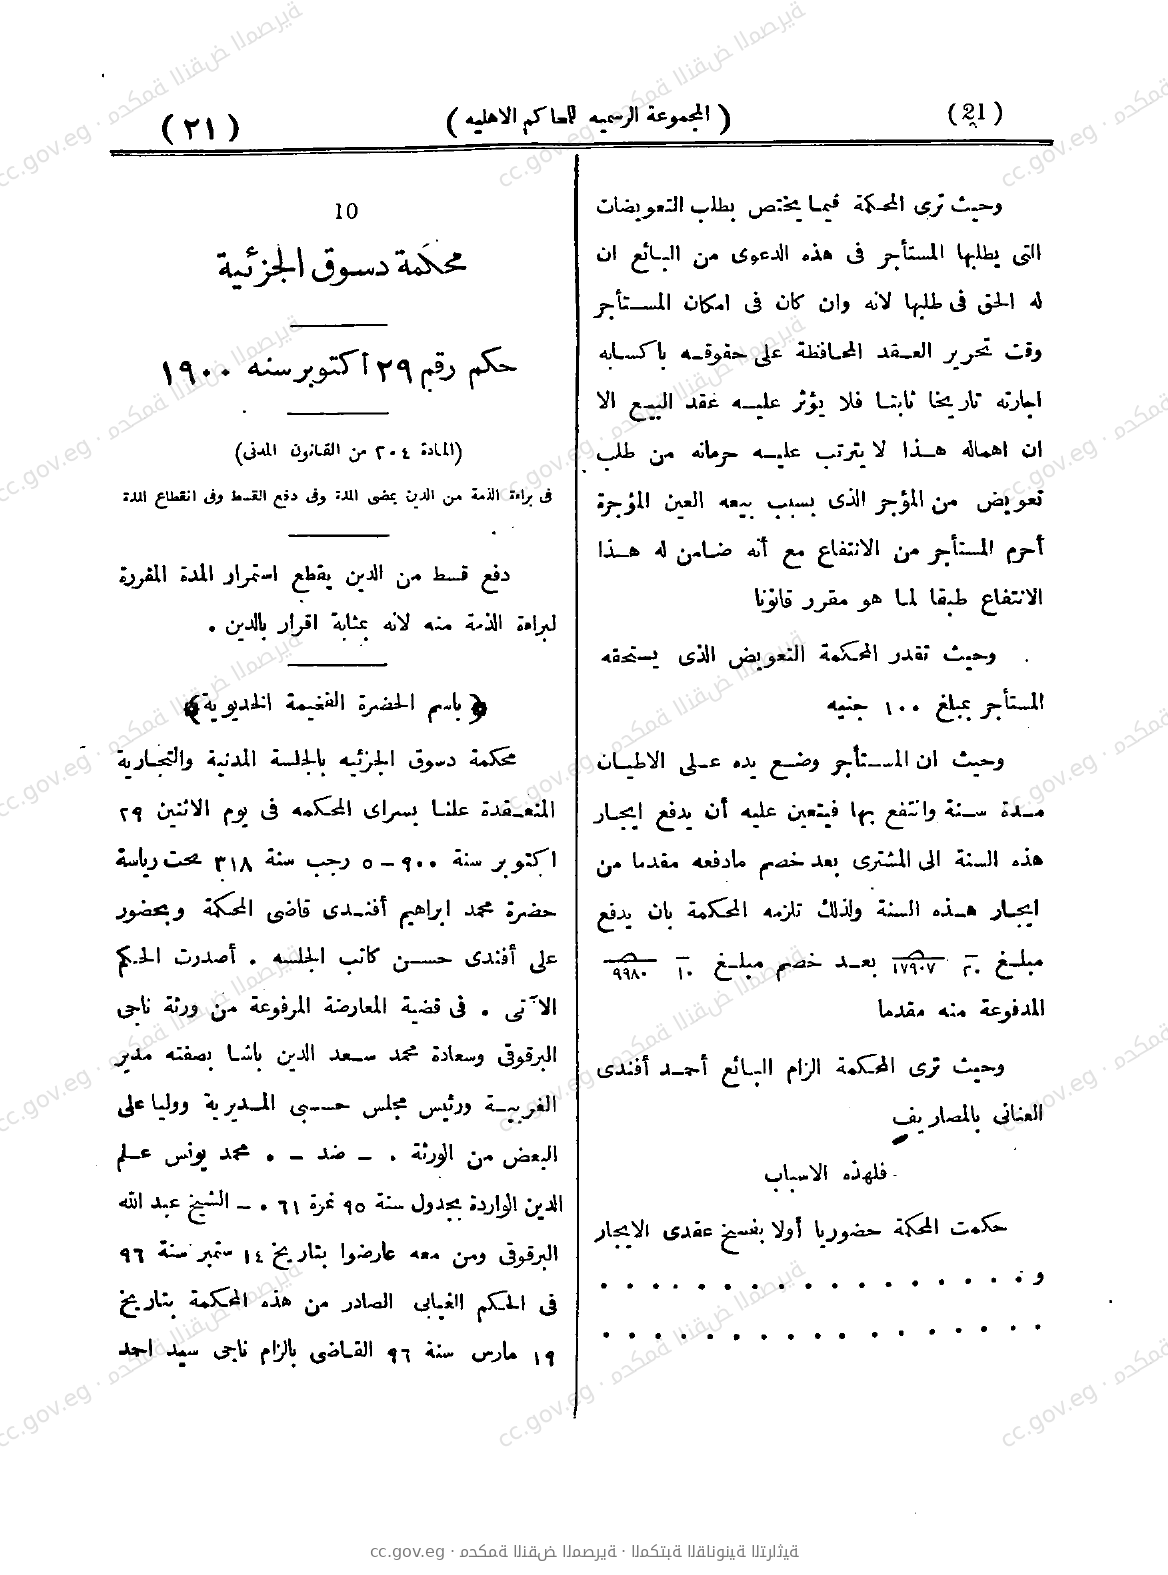 (21)
(المجموعة الرسميه للمحاكم الاهليه)
(٢١)
وحيث ترى المحكمة فيما يختص بطلب التعويضات
التى يطلبها المستأجر فى هذه الدعوى من البائع ان
له الحق فى طلبها لانه وان كان فى امكان المستأجر
وقت تحرير العقد المحافظة على حقوقه باكسابه
اجارته تاريخا ثابتا فلا يؤثر عليه عقد البيع الا
ان اهماله هذا لا يترتب عليه حرمانه من طلب
تعويض من المؤجر الذى بسبب بيعه العين المؤجرة
أحرم المستأجر من الانتفاع مع أنه ضامن له هذا
الانتفاع طبقا لما هو مقرر قانونا
وحيث تقدر المحكمة التعويض الذى يستحقه
المستأجر بمبلغ ١٠٠ جنيه
وحيث ان المستأجر وضع يده على الاطيان
مدة سنة وانتفع بها فيتعين عليه أن يدفع ايجار
هذه السنة الى المشترى بعد خصم مادفعه مقدما من
ايجار هذه السنة ولذلك تلزمه المحكمة بان يدفع
مبلغ ٢٠ ١٧٩٠٧ بعد خصم مبلغ ١٠ ٩٩٨٠
المدفوعة منه مقدما
وحيث ترى المحكمة الزام البائع أحمد أفندى
العنانى بالمصاريف
فلهذه الاسباب
حكمت المحكمة حضوريا أولا بفسخ عقدى الايجار
و . . . . . . . . . . . . . . . .
. . . . . . . . . . . . . . . . .
10
محكمة دسوق الجزئية
حكم رقم ٢٩ اكتوبر سنه ١٩٠٠
(المادة ٢٠٤ من القانون المدنى)
فى براءة الذمة من الدين بمضى المدة وفى دفع القسط وفى انقطاع المدة
دفع قسط من الدين يقطع استمرار المدة المقررة
لبراءة الذمة منه لانه بمثابة اقرار بالدين .
﴿ باسم الحضرة الفخيمة الخديوية ﴾
محكمة دسوق الجزئيه بالجلسة المدنية والتجارية
المنعقدة علنا بسراى المحكمه فى يوم الاثنين ٢٩
اكتوبر سنة ٩٠٠ – ٥ رجب سنة ٣١٨ تحت رياسة
حضرة محمد ابراهيم أفندى قاضى المحكمة وبحضور
على أفندى حسن كاتب الجلسه . أصدرت الحكم
الآتى . فى قضية المعارضة المرفوعة من ورثة ناجى
البرقوقى وسعادة محمد سعد الدين باشا بصفته مدير
الغربية ورئيس مجلس حسبى المديرية ووليا على
البعض من الورثة . – ضد – . محمد يونس علم
الدين الواردة بجدول سنة ٩٥ نمرة ٦١ . – الشيخ عبد الله
البرقوقى ومن معه عارضوا بتاريخ ١٤ ستمبر سنة ٩٦
فى الحكم الغيابى الصادر من هذه المحكمة بتاريخ
١٩ مارس سنة ٩٦ القاضى بالزام ناجى سيد احمد
cc.gov.eg · محكمة النقض المصرية · المكتبة القانونية التراثية